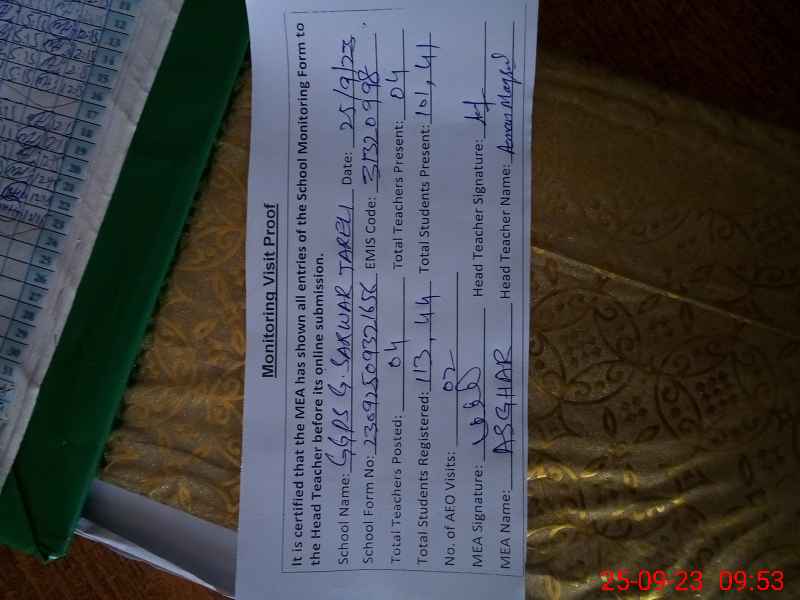 Monitoring Visit Proof
It is certified that the MEA has shown all entries of the School Monitoring Form to
the Head Teacher before its online submission.
School Name: GGPS G. SARWAR TARELI Date: 25/9/23
School Form No: 23092509321656 EMIS Code: 31320998
Total Teachers Posted: 04 Total Teachers Present: 04
Total Students Registered: 113, 44 Total Students Present: 101, 41
No. of AEO Visits: 02
MEA Signature: Head Teacher Signature:
MEA Name: ASGHAR Head Teacher Name:
25-09-23 09:53